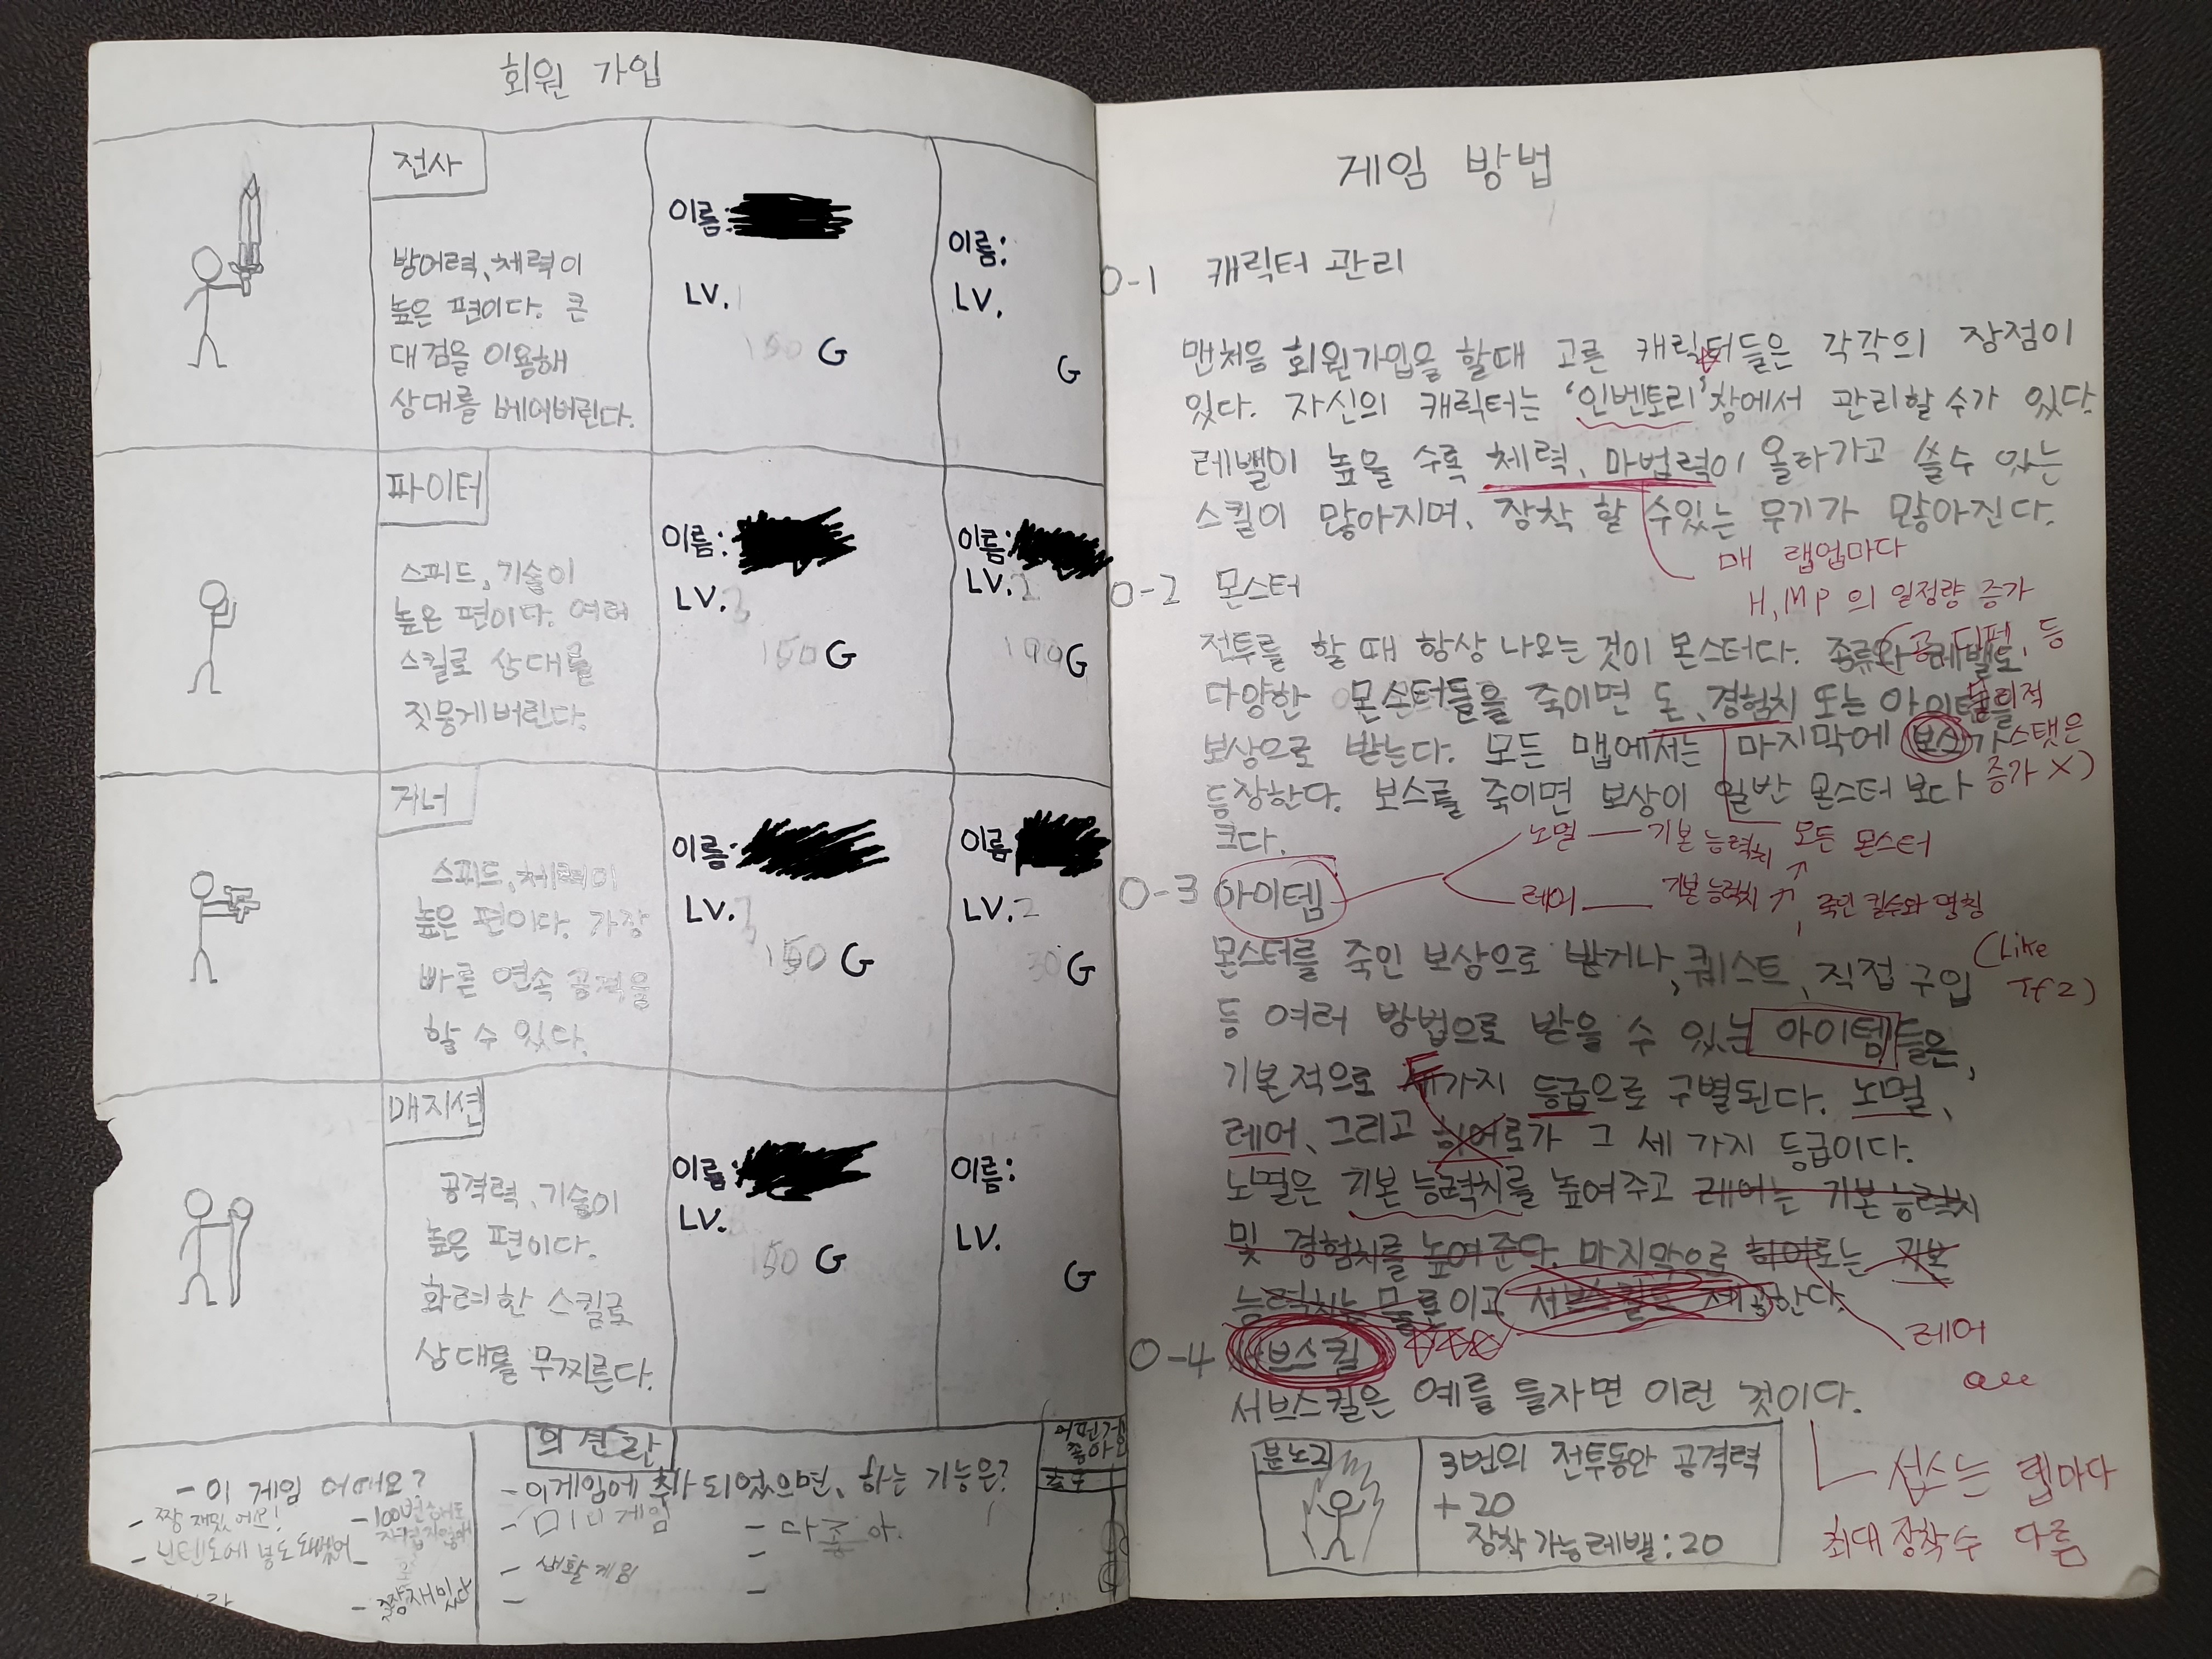 회원 가입
전사
방어력, 체력이
높은 편이다. 큰
대검을 이용해
상대를 베어버린다.
이름:
LV.1
150 G
이름:
LV.
G
파이터
스피드, 기술이
높은 편이다. 여러
스킬로 상대를
짓뭉게버린다.
이름:
LV.3
150 G
이름:
LV.2
190 G
거너
스피드, 체력이
높은 편이다. 가장
빠른 연속 공격을
할 수 있다.
이름:
LV.3
150 G
이름
LV.2
30 G
매지션
공격력, 기술이
높은 편이다.
화려한 스킬로
상대를 무찌른다.
이름:
LV.
150 G
이름:
LV.
G
- 이 게임 어때요?
- 짱 재밌어요!
- 100번 해도
의견란
- 이게임에 추가 되었으면, 하는 기능은?
- 미니 게임
- 다 좋아.
- 생활 게임
게임 방법
0-1 캐릭터 관리
맨처음 회원가입을 할때 고른 캐릭터들은 각각의 장점이
있다. 자신의 캐릭터는 '인벤토리'창에서 관리할 수가 있다
레밸이 높을 수록 체력, 마법력이 올라가고 쓸수 있는
스킬이 많아지며, 장착 할 수있는 무기가 많아진다.
매 랩업마다
H, MP의 일정량 증가
(공, 디펜, 등
물리적
스탯은
증가 X)
0-2 몬스터
전투를 할 때 항상 나오는 것이 몬스터다. 종류와 레밸도
다양한 몬스터들을 죽이면 돈, 경험치 또는 아이템을
보상으로 받는다. 모든 맵에서는 마지막에 보스가
등장한다. 보스를 죽이면 보상이 일반 몬스터 보다
크다.
모든 몬스터
0-3 아이템
노멀 — 기본 능력치 ↑
레어 — 기본 능력치 ↑, 죽인 킬수와 명칭
(Like
Tf2)
몬스터를 죽인 보상으로 받거나, 퀘스트, 직접 구입
등 여러 방법으로 받을 수 있는 아이템들은,
기본적으로 세가지 등급으로 구별된다. 노멀,
레어, 그리고 히어로가 그 세 가지 등급이다.
노멀은 기본 능력치를 높여주고 레어는 기본 능력치
및 경험치를 높여준다. 마지막으로 히어로는 기본
능력치는 물론이고 서브스킬도 제공한다.
레어
0-4 서브스킬
서브스킬은 예를 들자면 이런 것이다.
분노
3번의 전투동안 공격력
+20
장착가능레밸: 20
섭스는 렙마다
최대 장착수 다름